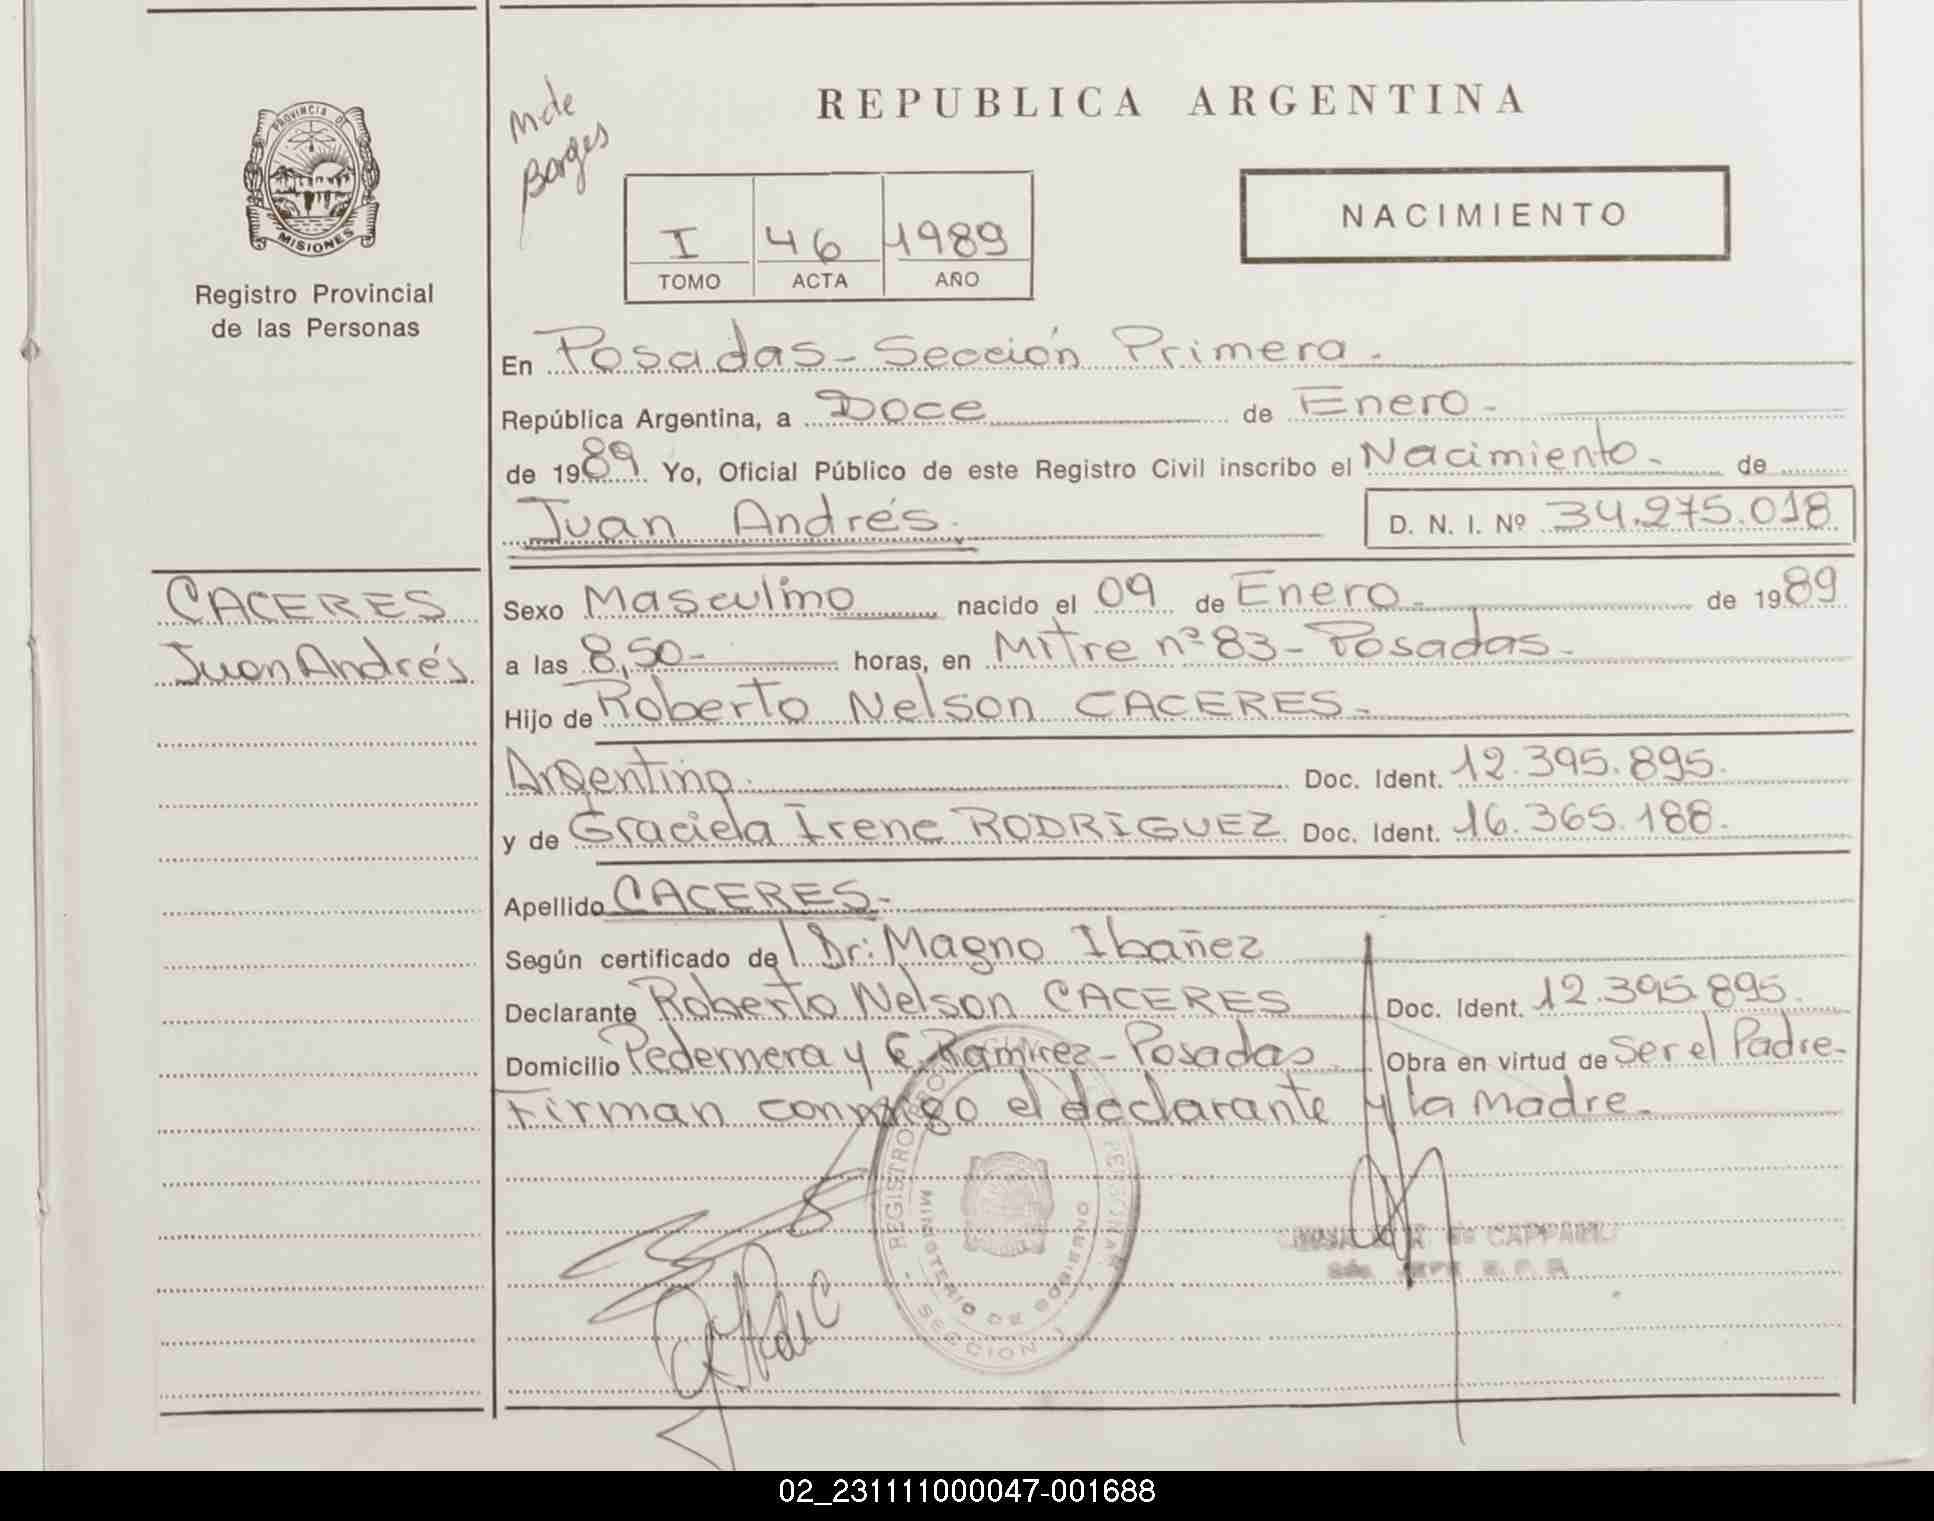 PROVINCIA DE
MISIONES
Registro Provincial
de las Personas
CACERES
Juan Andrés
REPUBLICA ARGENTINA
Borges
I 46 1989
TOMO ACTA AÑO
NACIMIENTO
En Posadas - Sección Primera.
República Argentina, a Doce de Enero-
de 1989. Yo, Oficial Público de este Registro Civil inscribo el Nacimiento- de
Juan Andrés. D. N. I. Nº 34.275.018
Sexo Masculino nacido el 09 de Enero- de 1989
a las 8,50- horas, en Mitre nº 83 - Posadas-
Hijo de Roberto Nelson CACERES-
Argentino. Doc. Ident. 12.395.895.
y de Graciela Irene RODRIGUEZ Doc. Ident. 16.365.188.
Apellido CACERES-
Según certificado del Dr: Magno Ibañez
Declarante Roberto Nelson CACERES Doc. Ident. 12.395.895.
Domicilio Pedernera y C. Ramirez - Posadas Obra en virtud de Ser el Padre-
Firman conmigo el declarante y la madre.
MINISTERIO DE GOBIERNO
SECCION 1
02_231111000047-001688